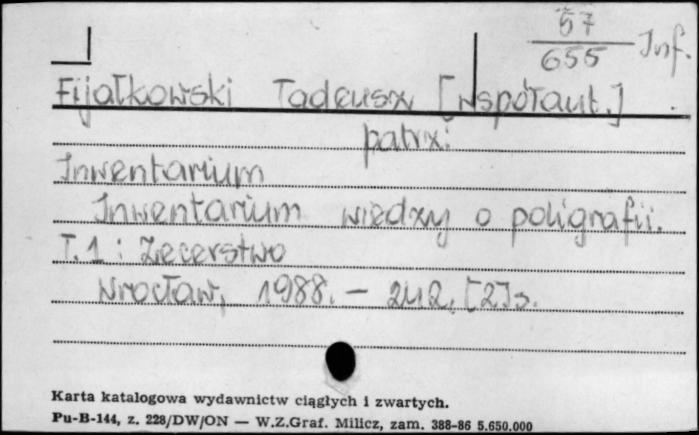 57
655 Inf.
Fijałkowski Tadeusz [współaut.]
patrz:
Inwentarium
Inwentarium wiedzy o poligrafii.
T. 1 : Zecerstwo
Wrocław, 1988. – 242, [2] s.
Karta katalogowa wydawnictw ciągłych i zwartych.
Pu-B-144, z. 228/DW/ON — W.Z.Graf. Milicz, zam. 388-86 5.650.000